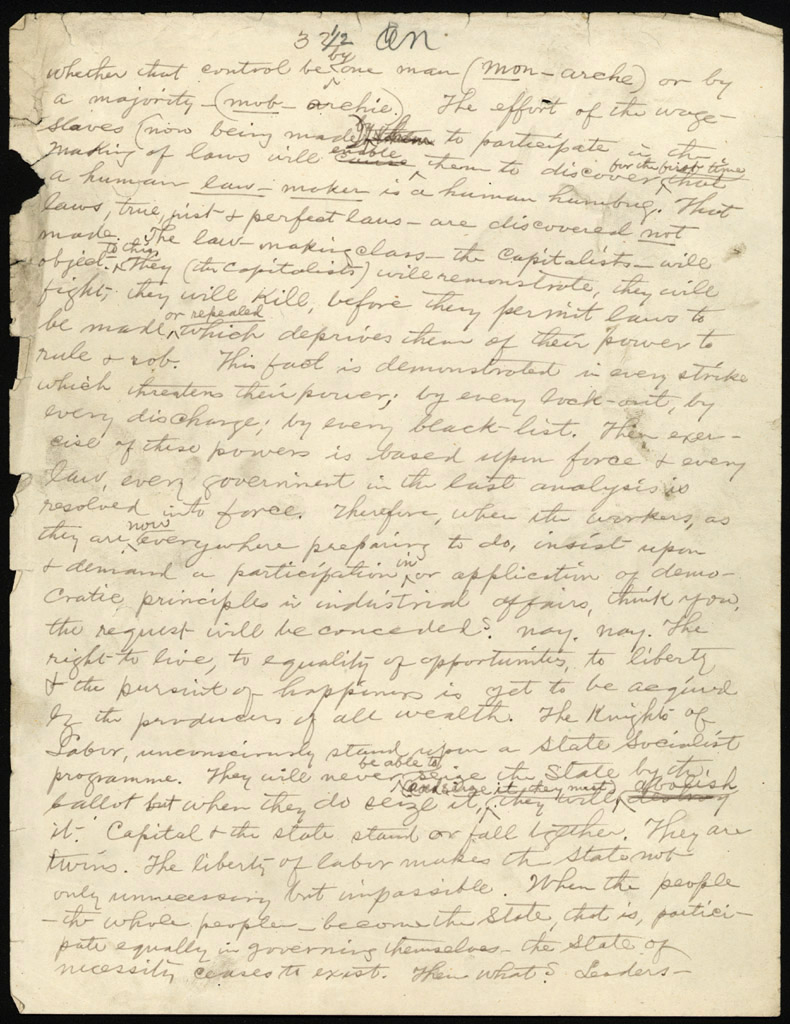 3 7½ On
whether that control be by one man (mon-arche) or by
a majority – (mob-archie.) The effort of the wage-
slaves (now being made) to participate in the
making of laws will enable them to discover for the first time that
a human law-maker is a human humbug. That
laws, true, just & perfect laws – are discovered not
made. The law-making class – the capitalists – will
object to this. They (the capitalists) will remonstrate, they will
fight, they will kill, before they permit laws to
be made, or repealed which deprives them of their power to
rule & rob. This fact is demonstrated in every strike
which threatens their power; by every lock-out, by
every discharge; by every black-list. Their exer-
cise of these powers is based upon force & every
law, every government in the last analysis is
resolved into force. Therefore, when the workers, as
they are now everywhere preparing to do, insist upon
& demand a participation in or application of demo-
cratic principles in industrial affairs, think you,
the request will be conceded? nay, nay. The
right to live, to equality of opportunities, to liberty
& the pursuit of happiness is yet to be acquired
by the producers of all wealth. The Knights of
Labor, unconsciously stand upon a State Socialist
programme. They will never be able to seize the State by the
ballot but when they do seize it, (and seize it they must) they will abolish
it. Capital & the state stand or fall together. They are
twins. The liberty of labor makes the State not
only unnecessary but impossible. When the people
– the whole people – become the State, that is, partici-
pate equally in governing themselves – the State of
necessity ceases to exist. Then what? Leaders –